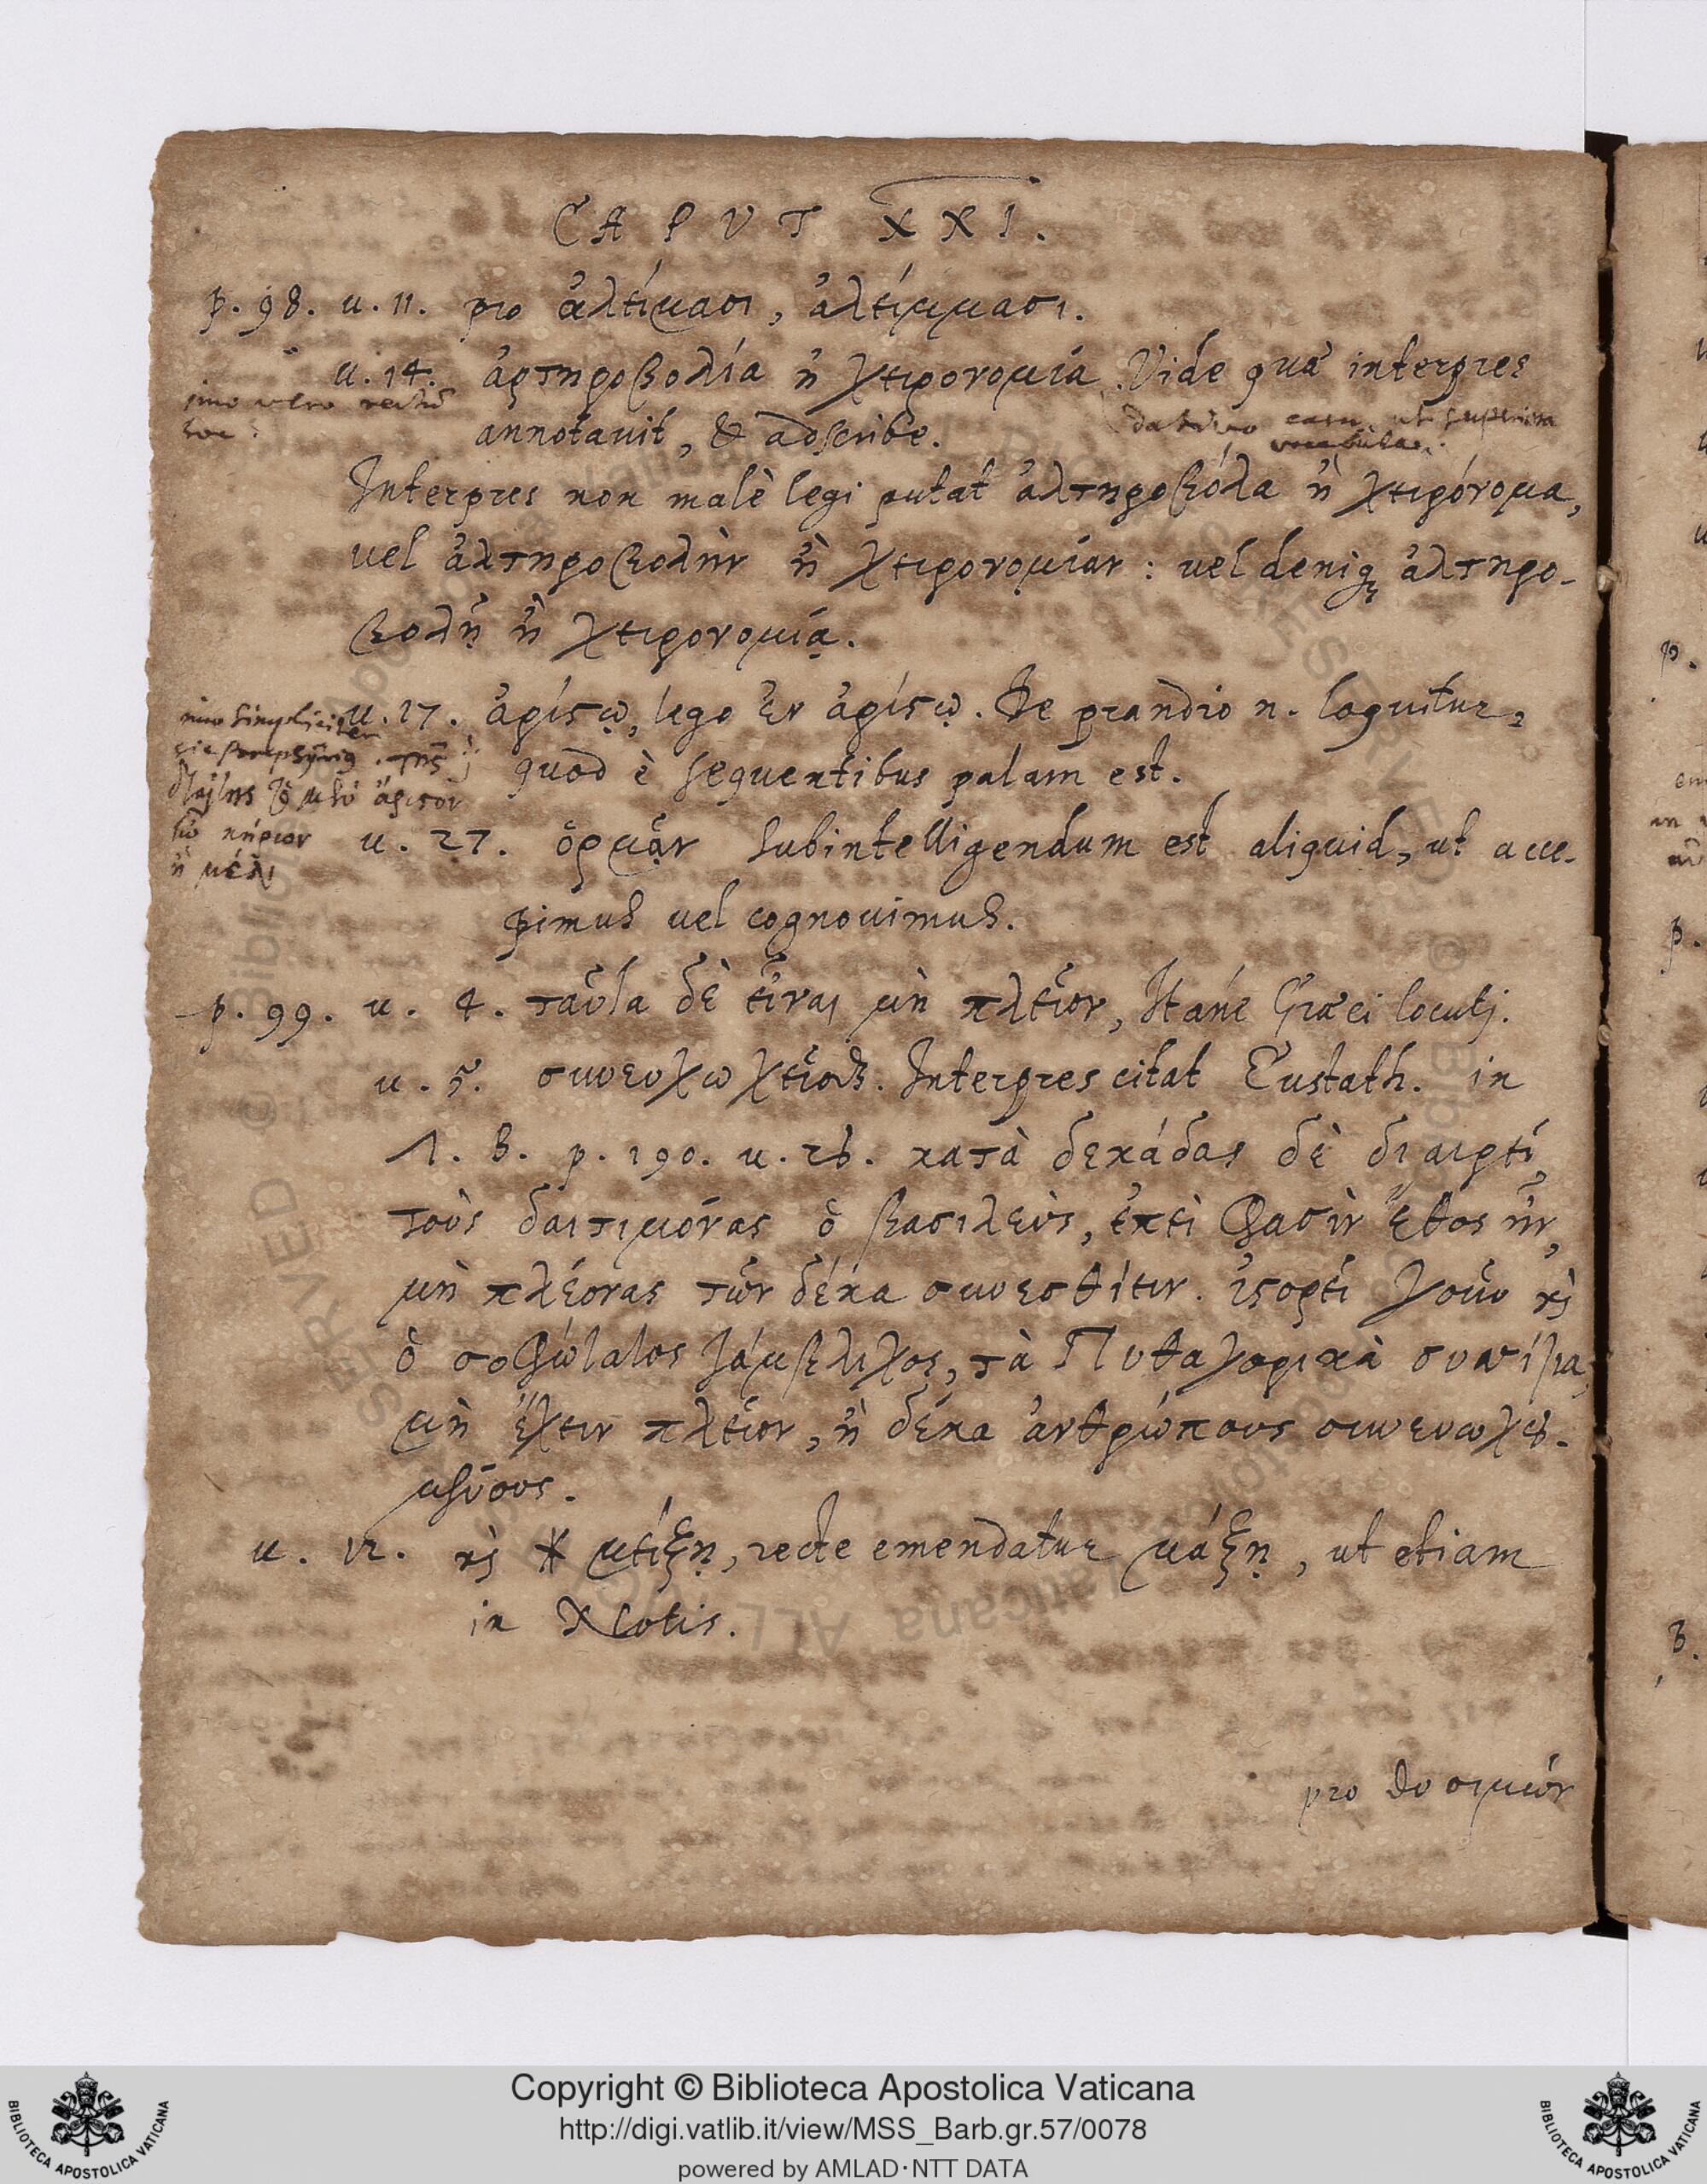 CAPUT XXI.
p. 98. u. 11. pro ἀλείμασι, ἀλείμμασι.
u. 14. ἀρτηροβολία ἢ χειρονομία. Vide quæ interpres
imo vero rectiū
annotavit, & adscribe.
dativo casu, ut superiora
vocabula.
Interpres non malè legi putat ἀλτηροβόλα ἢ χειρόνομα,
vel ἀλτηροβολὴν ἢ χειρονομίαν : vel deniq; ἀλτηρο-
βολῇ ἢ χειρονομίᾳ.
imo simpliciter
u. 17. ἀρίστῳ, lego ἐν ἀρίστῳ. De prandio n. loquitur,
quod è sequentibus palam est.
ἄριστον
κηρίον
ἢ μέλι
u. 27. ὁρμᾷν subintelligendum est aliquid, ut acce-
pimus vel cognovimus.
p. 99. u. 4. ταῦτα δὲ εἶναι μὴ πλεῖον, Itáne Græci locutj.
u. 5. Interpres citat Eustath. in
Λ. B. p. 190. u. 26. κατὰ δεκάδας δὲ διαιρεῖ
τοὺς δαιτυμόνας ὁ βασιλεὺς, ἐπεὶ φασὶν ἔθος ἦν,
μὴ πλέονας τῶν δέκα συνεσθίειν. ἱστορεῖ γοῦν κὶ
ὁ σοφώτατος Ιάμβλιχος, τὰ Πυθαγορικὰ συσσίτια,
μὴ ἔχειν πλεῖον, ἢ δέκα ἀνθρώπους συνευωχου-
μένους.
u. 12. κὶ * μείξῃ, recte emendatur μάξῃ, ut etiam
in Notis.
pro θυσιμών